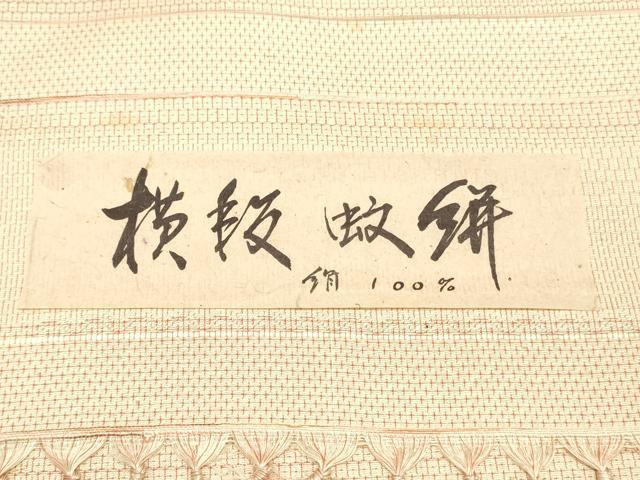 横段蚊絣
絹100%